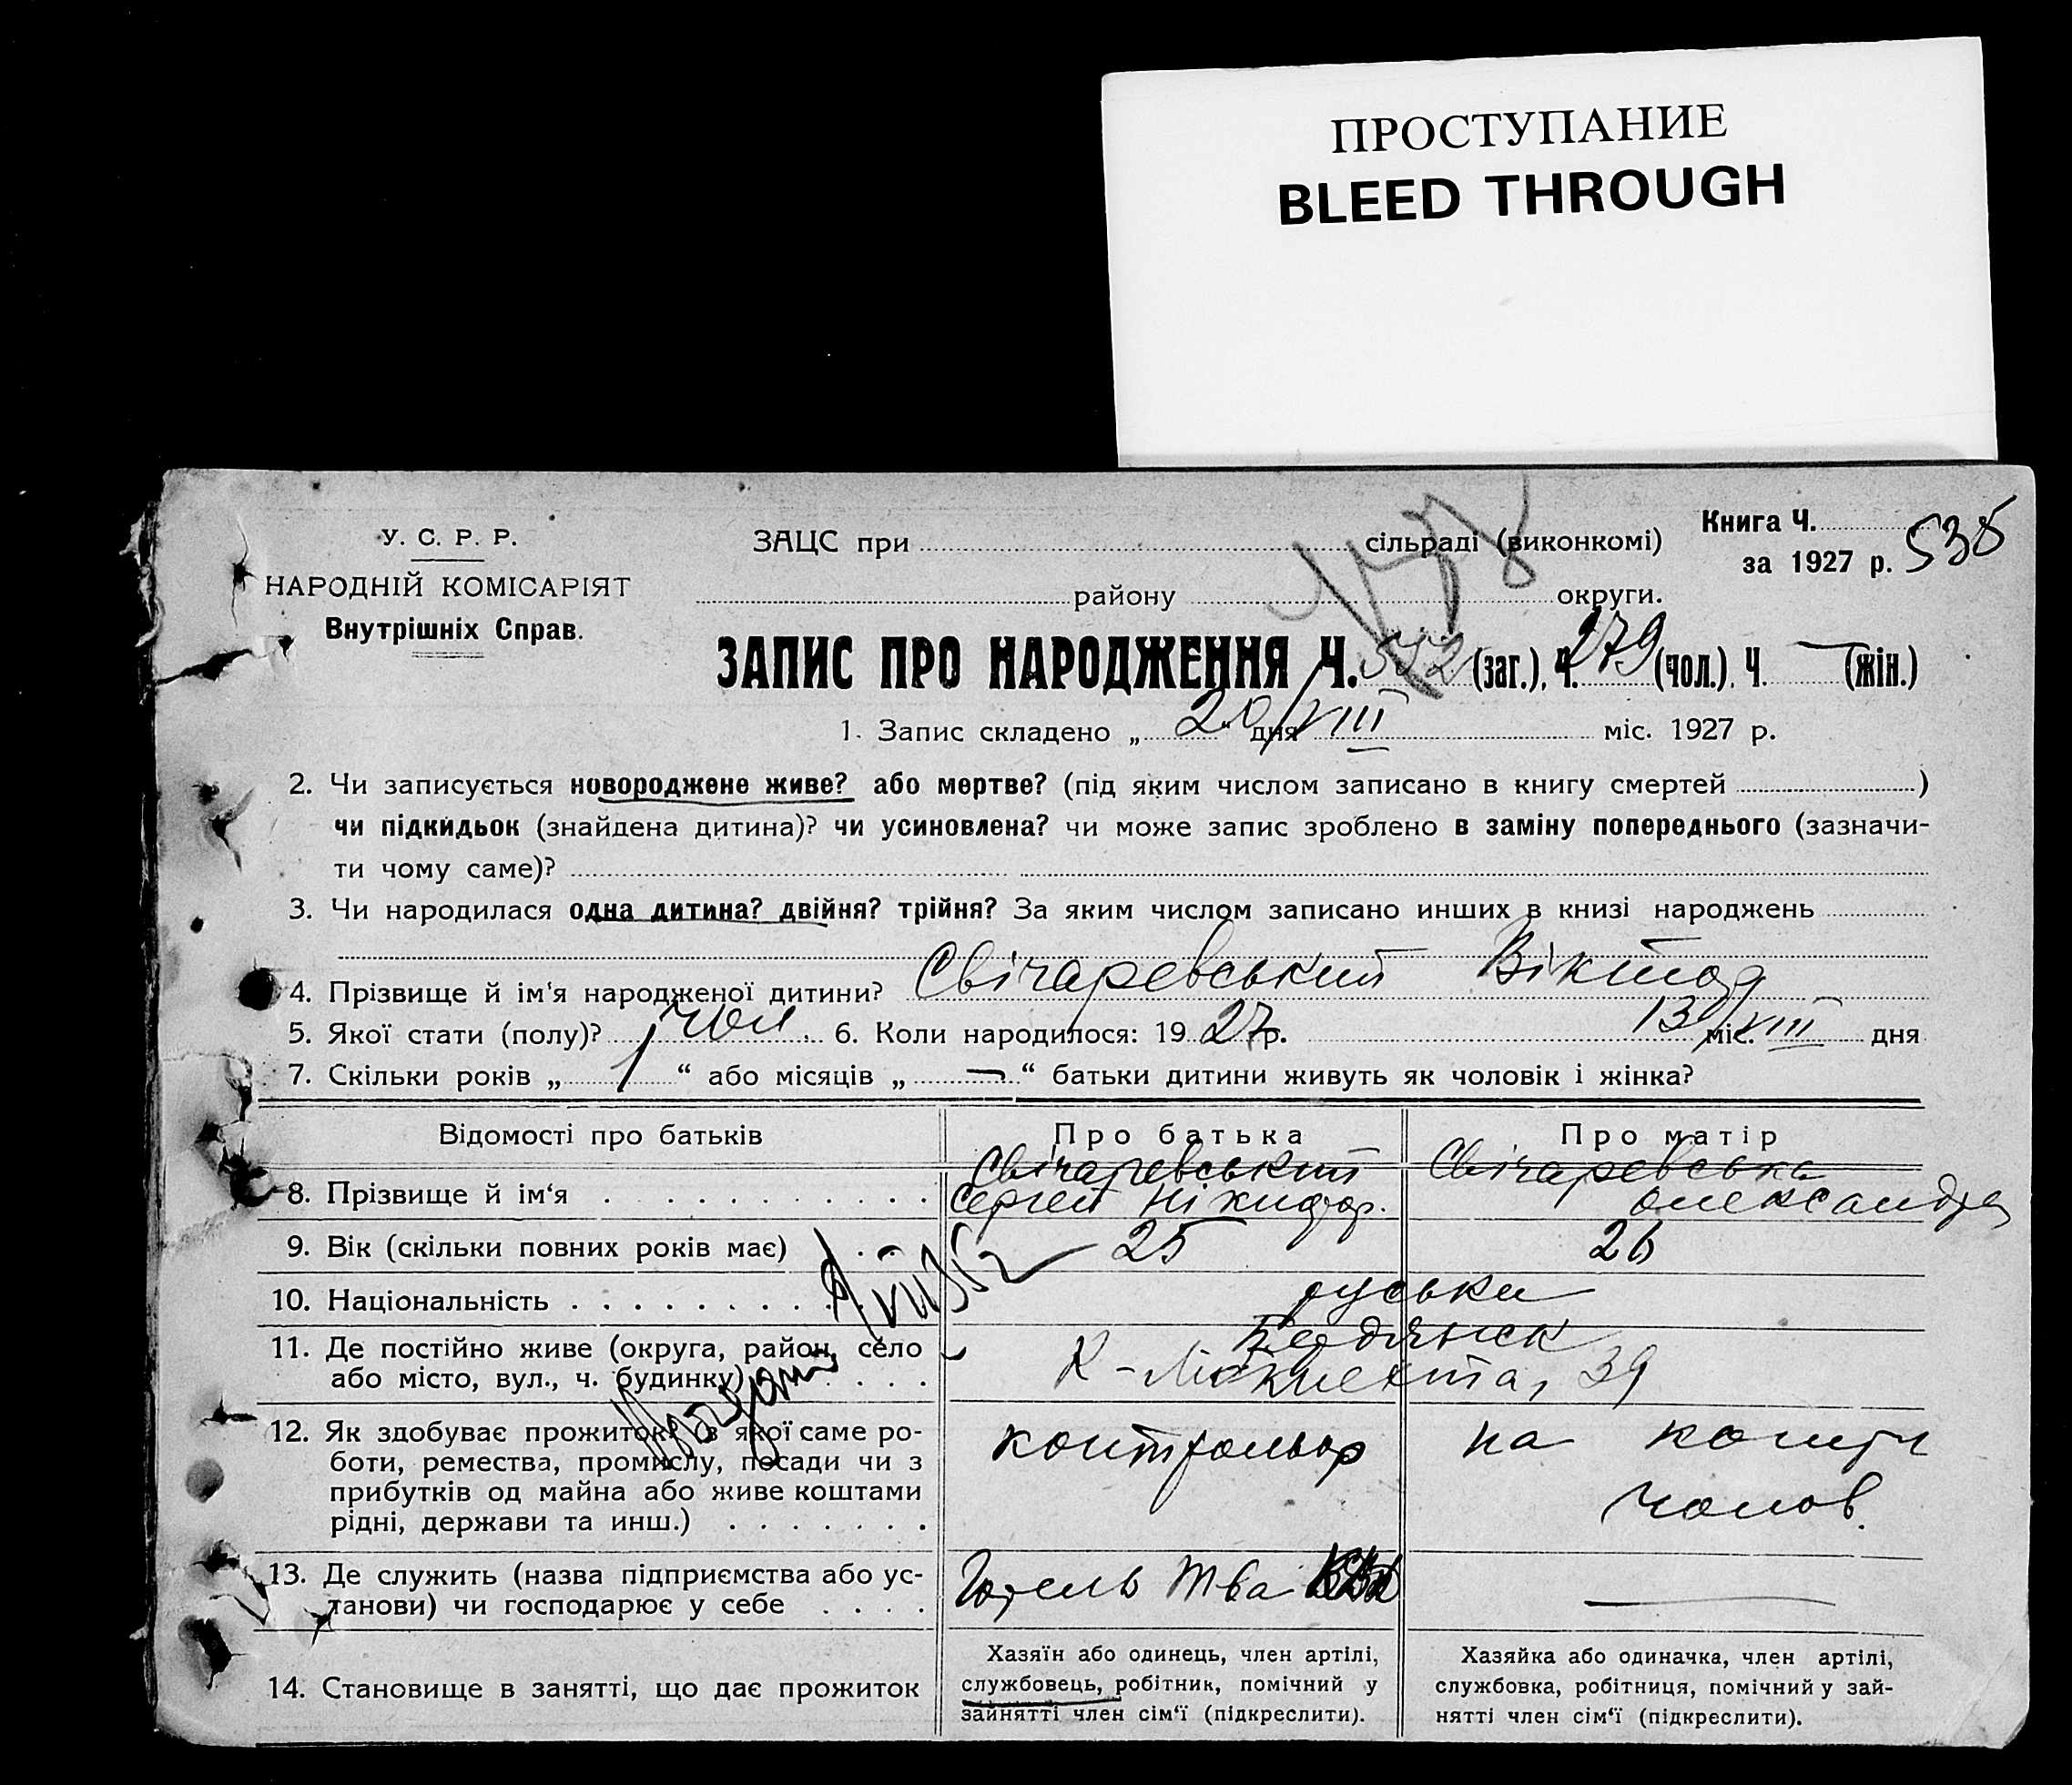 ПРОСТУПАНИЕ
BLEED THROUGH
У. С. Р. Р.
НАРОДНІЙ КОМІСАРІЯТ
Внутрішніх Справ.
ЗАЦС при сільраді (виконкомі)
району округи.
Книга Ч.
за 1927 р. 535
ЗАПИС ПРО НАРОДЖЕННЯ Ч. 532 (заг.), Ч. 279 (чол.), Ч. — (жін.)
1. Запис складено „ 20 “ дня VIII міс. 1927 р.
2. Чи записується новороджене живе? або мертве? (під яким числом записано в книгу смертей )
чи підкидьок (знайдена дитина)? чи усиновлена? чи може запис зроблено в заміну попереднього (зазначи-
ти чому саме)?
3. Чи народилася одна дитина? двійня? трійня? За яким числом записано инших в книзі народжень
4. Прізвище й ім‘я народженої дитини? Свічаревський Віктор
5. Якої стати (полу)? чол. 6. Коли народилося: 19 27 р. 13/VIII міс. дня
7. Скільки років „ 1 “ або місяців „ — “ батьки дитини живуть як чоловік і жінка?
Відомості про батьків Про батька Про матір
8. Прізвище й ім‘я Свічаревський Свічаревська
Сергей Нікифор. Олександра
9. Вік (скільки повних років має) 25 26
10. Національність руськи
11. Де постійно живе (округа, район, село Бердянськ
або місто, вул., ч. будинку) К-Лібкнехта, 39
12. Як здобуває прожиток? (з якої саме ро- контрольор на кошти
боти, ремества, промислу, посади чи з
прибутків од майна або живе коштами чолов.
рідні, держави та инш.)
13. Де служить (назва підприємства або ус- Готель Т-ва —
танови) чи господарює у себе
14. Становище в занятті, що дає прожиток
Хазяїн або одинець, член артілі,
службовець, робітник, помічний у
зайнятті член сім‘ї (підкреслити).
Хазяйка або одиначка, член артілі,
службовка, робітниця, помічний у зай-
нятті член сім‘ї (підкреслити).